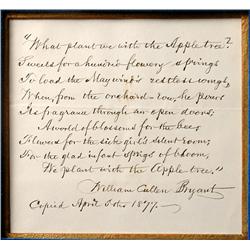 "What plant we with the Apple tree?
Sweets for a hundred flowery springs
To load the May-wind's restless wings,
When, from the orchard-row, he pours
Its fragrance through our open doors;
A world of blossoms for the bee;
Flowers for the sick girl's silent room;
For the glad infant sprigs of bloom,
We plant with the Apple tree."
William Cullen Bryant
Copied April 1877.